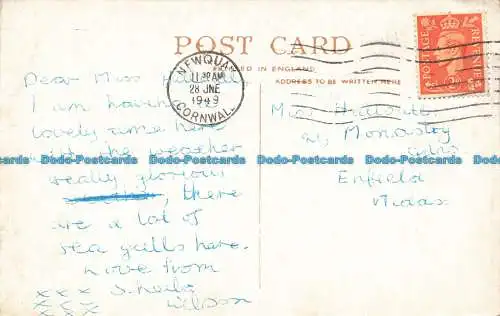 POST CARD
PRINTED IN ENGLAND
ADDRESS TO BE WRITTEN HERE
NEWQUAY
11 30 AM
28 JNE
1949
CORNWALL
POSTAGE
REVENUE
Dear Miss
I am having a
lovely time here
with the weather
really glorious
, there
are a lot of
sea gulls here.
Love from
x x x Sheila
x x x Wilson
Miss
Monastery
Enfield
Middx
Dodo-Postcards Dodo-Postcards Dodo-Postcards Dodo-Postcards Dodo-Postcards